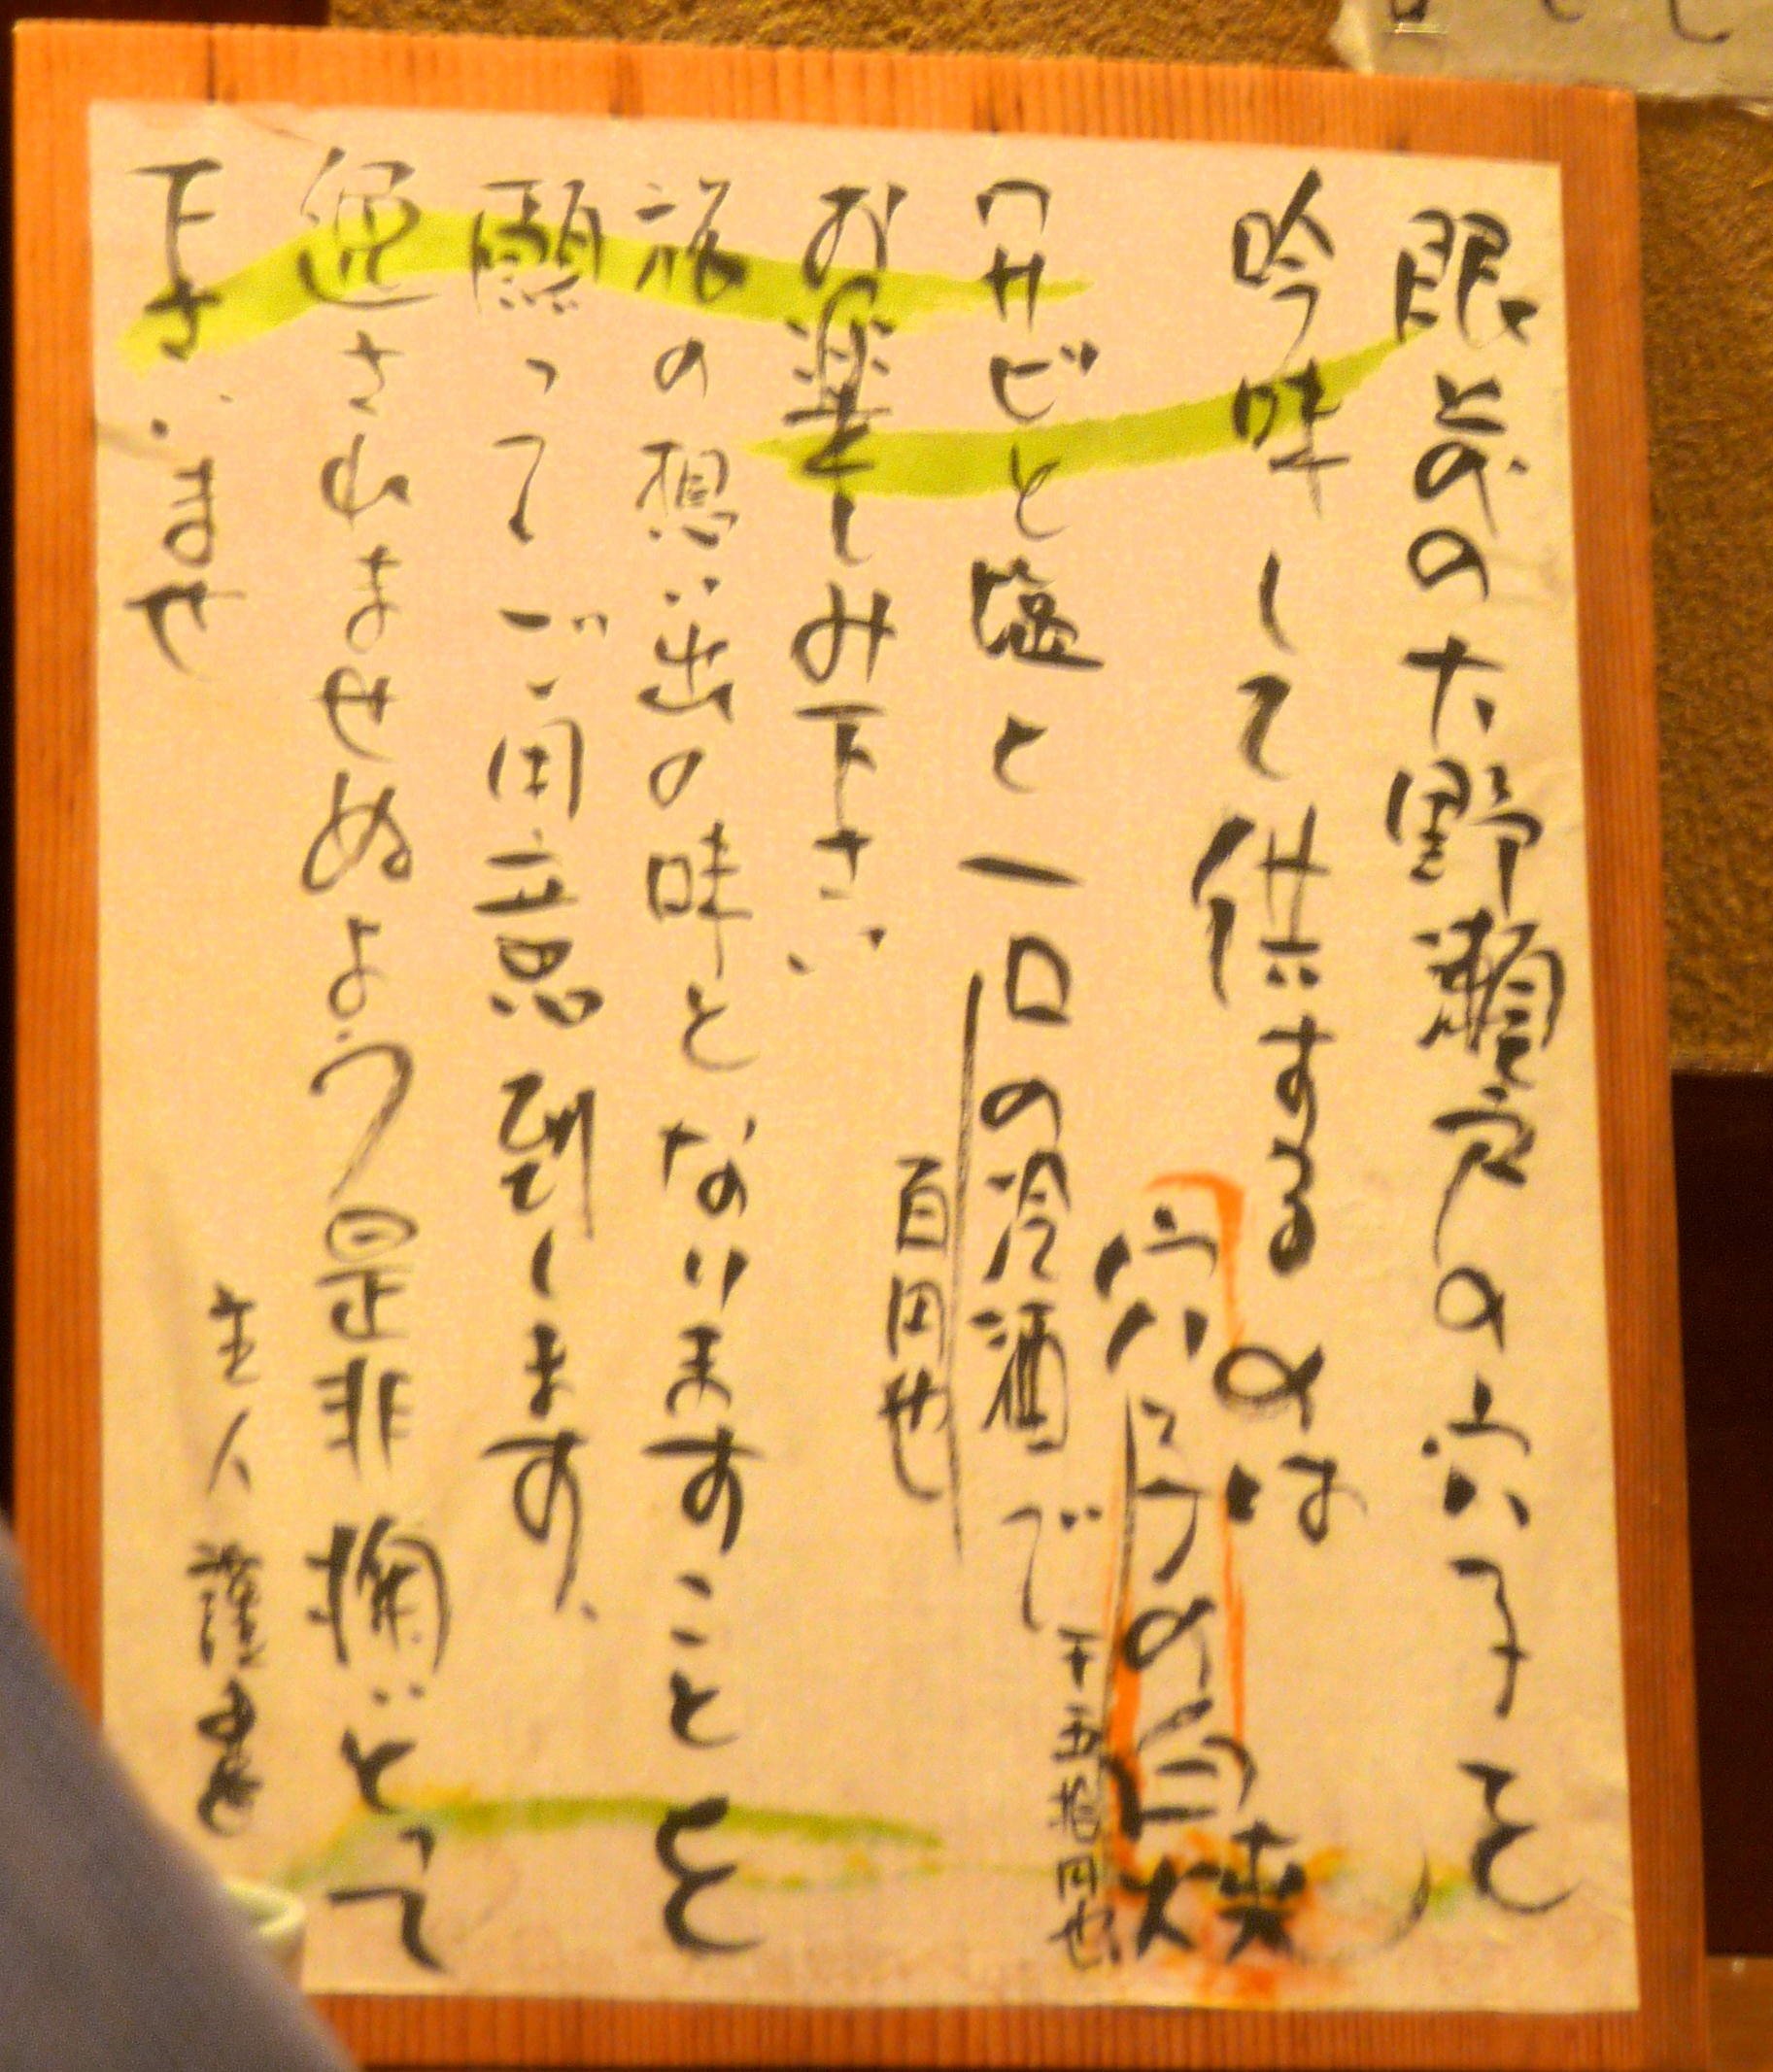 眼前の大野瀬戸の穴子を
吟味して供するのは
穴子の白焼
千五拾円也
ワサビと塩と一口の冷酒で
百円也
お楽しみ下さい
旅の想い出の味となりますことを
願ってご用意致します。
されませぬよう是非掬いとって
下さいませ
主人 謹白